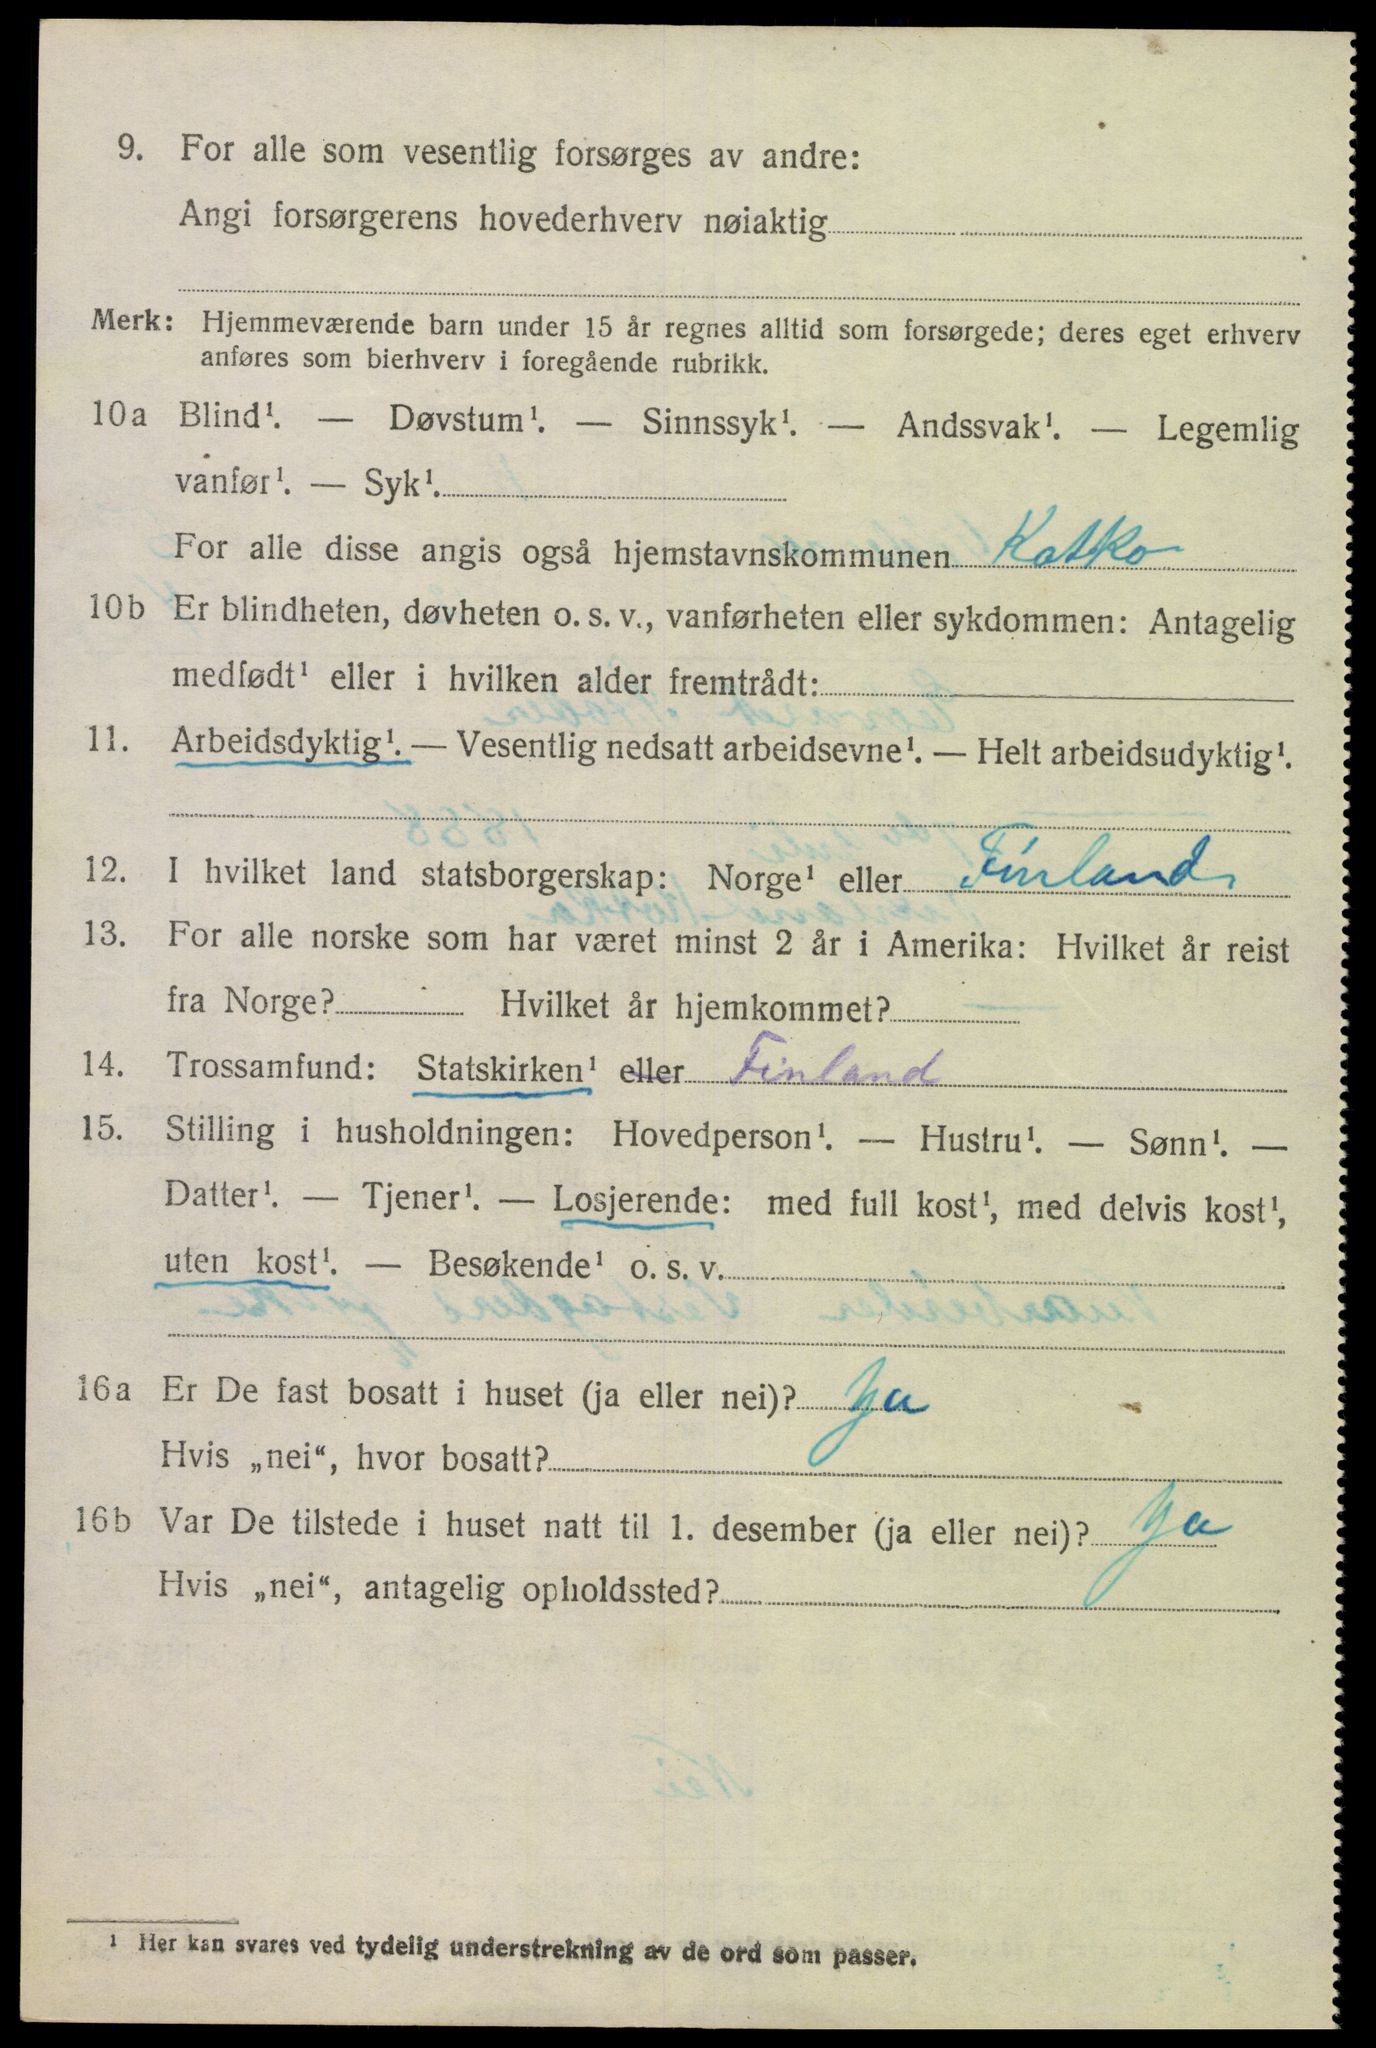 9. For alle som vesentlig forsørges av andre:
Angi forsørgerens hovederhverv nøiaktig
Merk: Hjemmeværende barn under 15 år regnes alltid som forsørgede; deres eget erhverv
anføres som bierhverv i foregående rubrikk.
10a Blind¹. — Døvstum¹. — Sinnssyk¹. — Andssvak¹. — Legemlig
vanfør¹. — Syk¹.
For alle disse angis også hjemstavnskommunen Kotko
10b Er blindheten, døvheten o. s. v., vanførheten eller sykdommen: Antagelig
medfødt¹ eller i hvilken alder fremtrådt:
11. Arbeidsdyktig¹. — Vesentlig nedsatt arbeidsevne¹. — Helt arbeidsudyktig¹.
12. I hvilket land statsborgerskap: Norge¹ eller Finland
13. For alle norske som har været minst 2 år i Amerika: Hvilket år reist
fra Norge? Hvilket år hjemkommet?
14. Trossamfund: Statskirken¹ eller Finland
15. Stilling i husholdningen: Hovedperson¹. — Hustru¹. — Sønn¹. —
Datter¹. — Tjener¹. — Losjerende: med full kost¹, med delvis kost¹,
uten kost¹. — Besøkende¹ o. s. v.
16a Er De fast bosatt i huset (ja eller nei)? Ja
Hvis „nei“, hvor bosatt?
16b Var De tilstede i huset natt til 1. desember (ja eller nei)? Ja
Hvis „nei“, antagelig opholdssted?
¹ Her kan svares ved tydelig understrekning av de ord som passer.